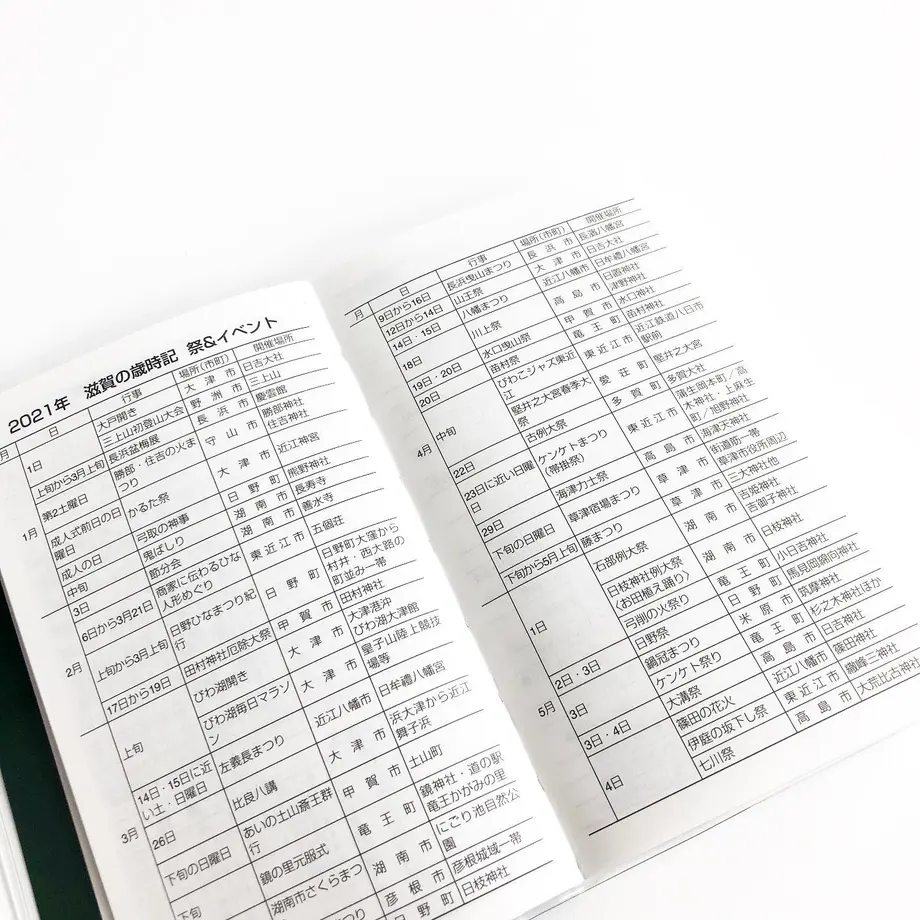 2021年 滋賀の歳時記 祭&イベント
月 日 行事 場所(市町) 開催場所
1月 1日 大戸開き 大津市 日吉大社
三上山初登山大会 野洲市 三上山
上旬から3月上旬 長浜盆梅展 長浜市 慶雲館
第2土曜日 勝部・住吉の火まつり 守山市 勝部神社 住吉神社
成人式前日の日曜日 かるた祭 大津市 近江神宮
成人の日 弓取の神事 日野町 熊野神社
中旬 鬼ばしり 湖南市 長寿寺
2月 3日 節分会 湖南市 善水寺
6日から3月21日 商家に伝わるひな人形めぐり 東近江市 五個荘
上旬から3月上旬 日野ひなまつり紀行 日野町 日野町大窪から村井・西大路の町並み一帯
17日から19日 田村神社厄除大祭 甲賀市 田村神社
3月 上旬 びわ湖開き 大津市 大津港沖 びわ湖大津館
びわ湖毎日マラソン 大津市 皇子山陸上競技場等
14日・15日に近い土・日曜日 左義長まつり 近江八幡市 日牟禮八幡宮
26日 比良八講 大津市 浜大津から近江舞子浜
下旬の日曜日 あいの土山斎王群行 甲賀市 土山町
下旬 鏡の里元服式 竜王町 鏡神社・道の駅竜王かがみの里
湖南市さくらまつ 湖南市 にごり池自然公園
彦根市 彦根城域一帯
日野町 日枝神社
月 日 行事 場所(市町) 開催場所
4月 9日から16日 長浜曳山まつり 長浜市 長濱八幡宮
12日から14日 山王祭 大津市 日吉大社
14日・15日 八幡まつり 近江八幡市 日牟禮八幡宮
18日 川上祭 高島市 日置神社 津野神社
19日・20日 水口曳山祭 甲賀市 水口神社
20日 苗村祭 竜王町 苗村神社
中旬 びわこジャズ東近江 東近江市 近江鉄道八日市駅前
堅井之大宮春季大祭 愛荘町 堅井之大宮
22日 古例大祭 多賀町 多賀大社
23日に近い日曜日 ケンケトまつり(帯掛祭) 東近江市 蒲生岡本町/高木神社・上麻生町/旭野神社
29日 海津力士祭 高島市 海津天神社
下旬の日曜日 草津宿場まつり 草津市 街道筋一帯 草津市役所周辺
下旬から5月上旬 藤まつり 草津市 三大神社他
5月 1日 石部例大祭 湖南市 吉姫神社 吉御子神社
日枝神社例大祭〈お田植え踊り〉 湖南市 日枝神社
弓削の火祭り 竜王町 小日吉神社
2日・3日 日野祭 日野町 馬見岡綿向神社
3日 鍋冠まつり 米原市 筑摩神社
ケンケト祭り 竜王町 杉之木神社ほか
3日・4日 大溝祭 高島市 日吉神社
4日 篠田の花火 近江八幡市 篠田神社
伊庭の坂下し祭 東近江市 繖峰三神社
七川祭 高島市 大荒比古神社